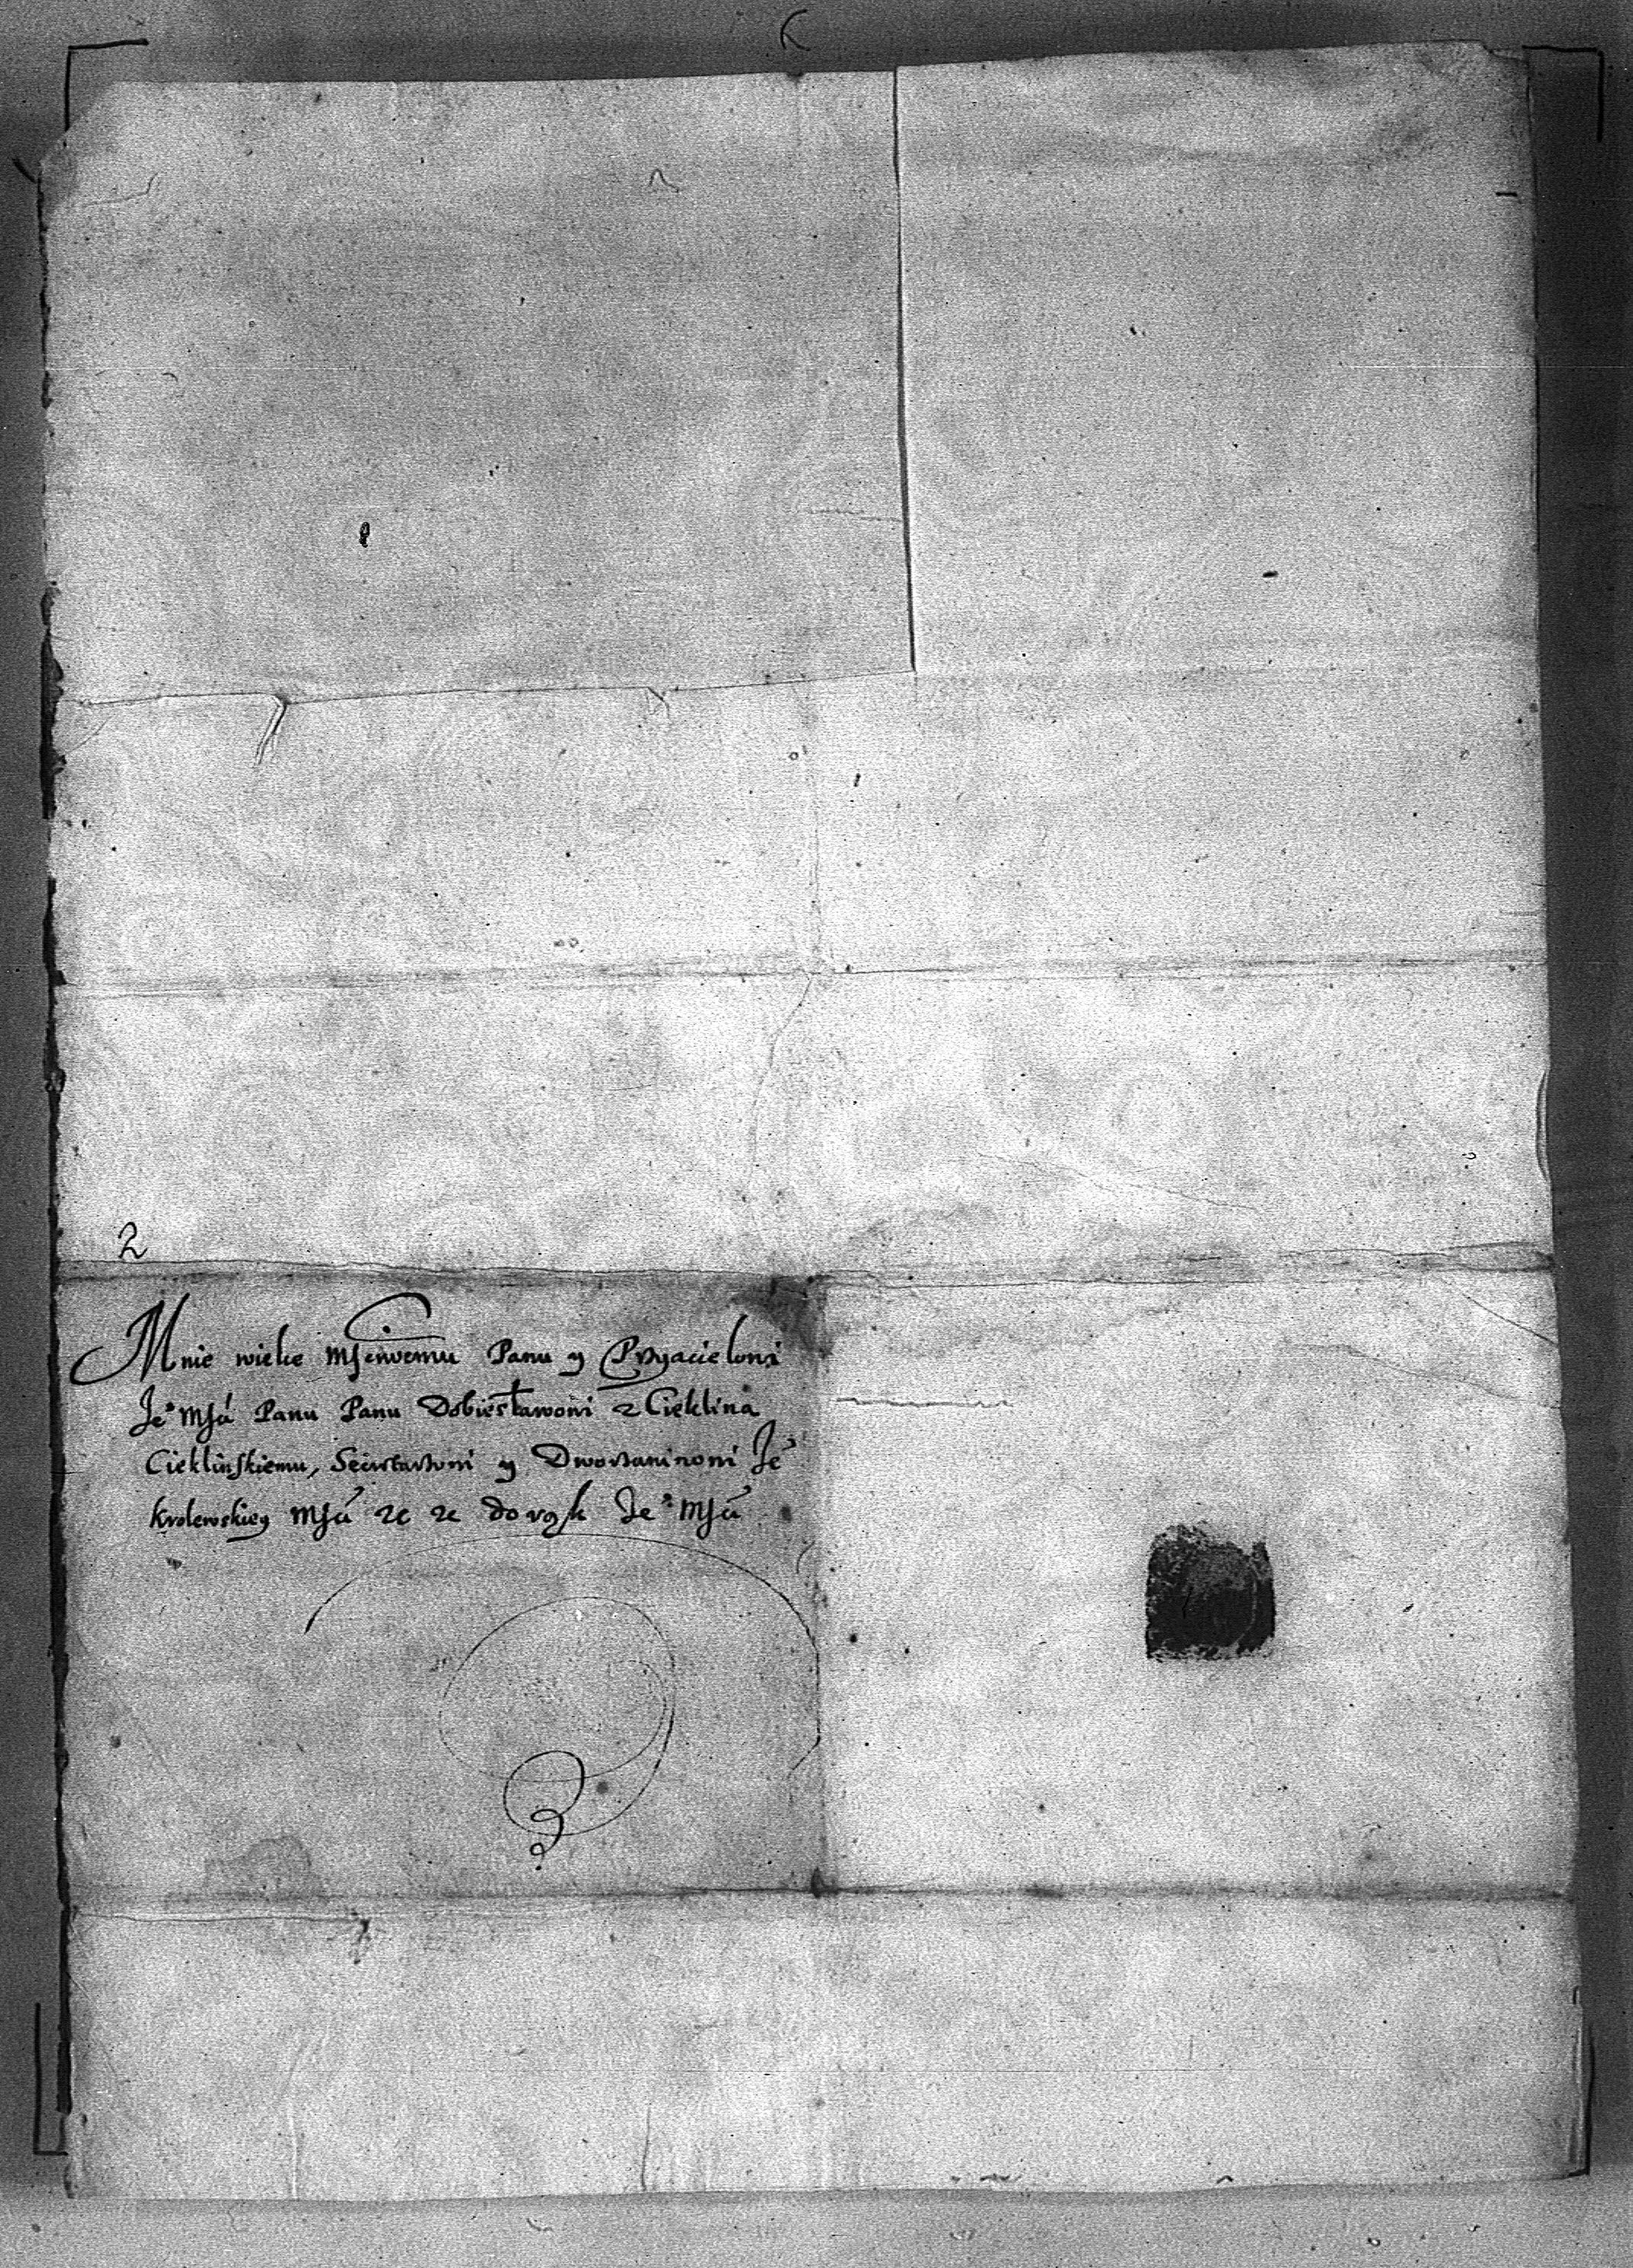 2
Mnie wielce Mſciwemu Panu y Przyacielowi
Je° Mſci Panu Panu Dobiesławowi z Cieklina
Cieklińſkiemu, Secretarzowi y Dworzaninowi Je°
Krolewskiey Mſci etc etc do rąk Je° Mſci